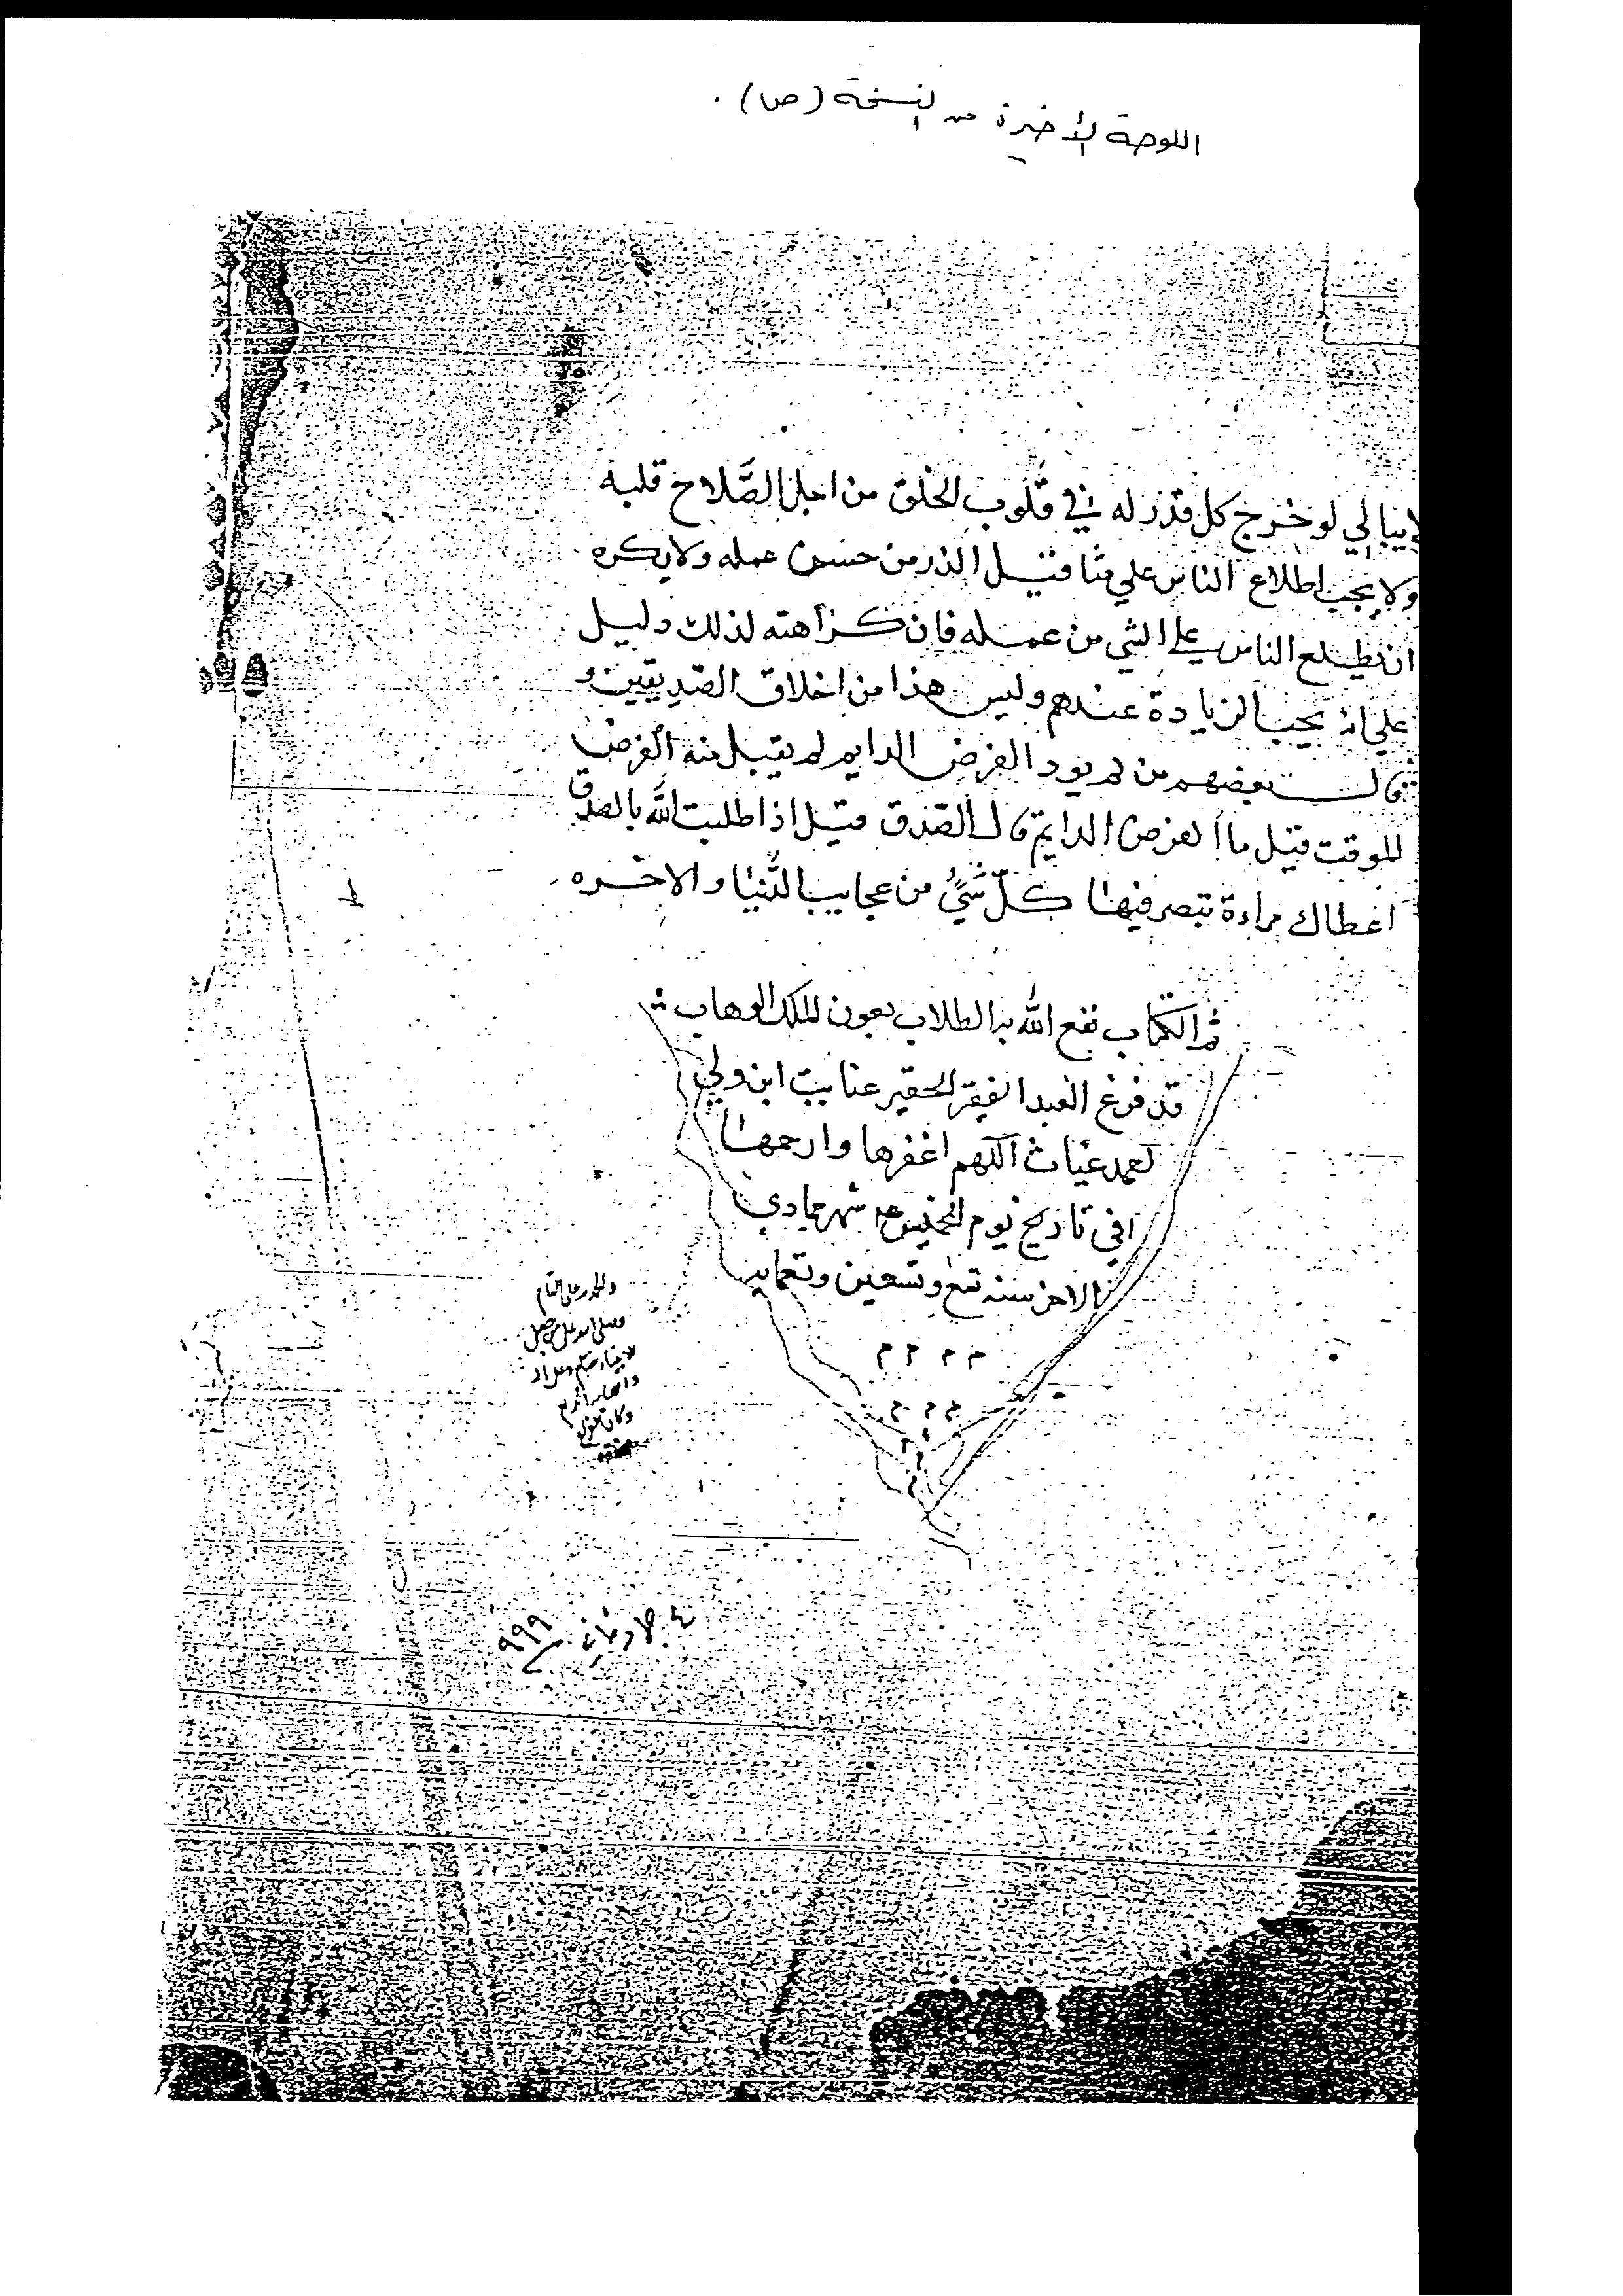 اللوحة الأخيرة من النسخة (ص) .
لايبالي لو خرج كل قدر له في قلوب الخلق من اجل الصَّلاح قلبه
ولايحب اطلاع الناس علي مثاقيل الذر من حسن عمله ولايكره
ان يطلع الناس علي الشي من عمله فان كراهته لذلك دليل
علي انه يحب الزيادة عندهم وليس هذا من اخلاق الصديقين و
قال بعضهم من لم يود الفرض الدايم لم يقبل منه الفرض
الموقت قيل ما الفرض الدايم قال الصدق قيل اذا طلبت الله بالصدق
اعطاك مراءة تبصر فيها كلّ شيٍ من عجايب الدُّنيا والاخره
تم الكتاب نفع الله به الطلاب بعون الملك الوهاب
قد فرغ العبد الفقير الحقير عنايت ابن ولي
غياث اللهم اغفرها وارحمها
في تاريخ يوم الخميس شهر جمادي
الاخر سنه تسع وتسعين وتسعمايه
م م م م
م م م
م
م
٤ جماد ثاني ٩٩٩